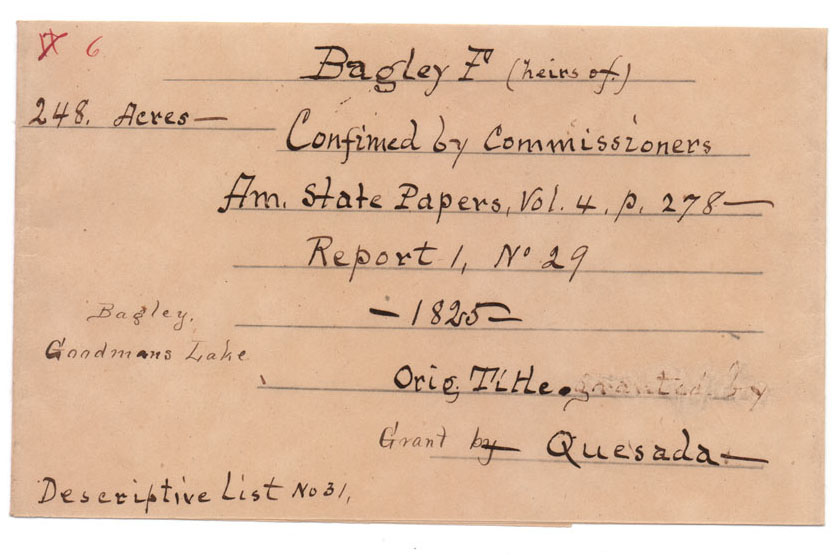 6
Bagley F (heirs of.)
248. Acres—
Confimed by Commissioners
Am. State Papers, Vol. 4, p. 278—
Report 1, No 29
—1825—
Bagley.
Goodmans Lake
Orig. Title. granted by
Grant by Quesada—
Descriptive List No 31,